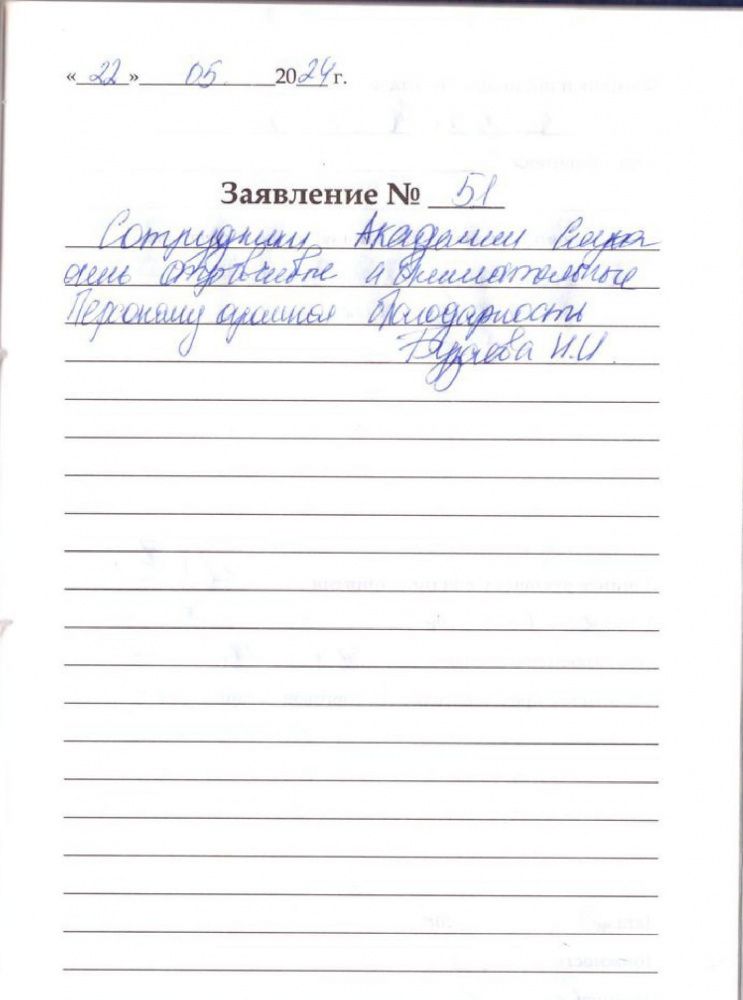 « 22 » 05. 2024 г.
Заявление № 51
Сотрудники Академии Слуха
очень отзывчивые и внимательные
Персоналу огромная благодарность
И.И.